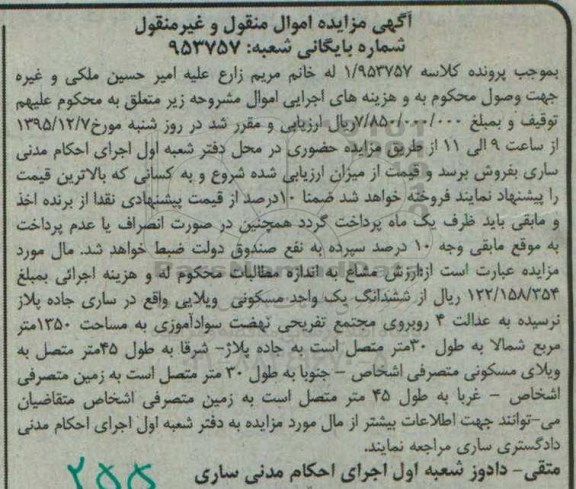 آگهی مزایده اموال منقول و غیرمنقول
شماره بایگانی شعبه: ۹۵۳۷۵۷
بموجب پرونده کلاسه ۱/۹۵۳۷۵۷ له خانم مریم زارع علیه امیر حسین ملکی و غیره
جهت وصول محکوم به و هزینه های اجرایی اموال مشروحه زیر متعلق به محکوم علیهم
توقیف و بمبلغ ۷/۸۵۰/۰۰۰/۰۰۰ ریال ارزیابی و مقرر شد در روز شنبه مورخ ۱۳۹۵/۱۲/۷
از ساعت ۹ الی ۱۱ از طریق مزایده حضوری در محل دفتر شعبه اول اجرای احکام مدنی
ساری بفروش برسد و قیمت از میزان ارزیابی شده شروع و به کسانی که بالاترین قیمت
را پیشنهاد نمایند فروخته خواهد شد ضمنا ۱۰درصد از قیمت پیشنهادی نقدا از برنده اخذ
و مابقی باید ظرف یک ماه پرداخت گردد همچنین در صورت انصراف یا عدم پرداخت
به موقع مابقی وجه ۱۰ درصد سپرده به نفع صندوق دولت ضبط خواهد شد. مال مورد
مزایده عبارت است ازارزش مشاع به اندازه مطالبات محکوم له و هزینه اجرائی بمبلغ
۱۲۲/۱۵۸/۳۵۴ ریال از ششدانگ یک واحد مسکونی ویلایی واقع در ساری جاده پلاژ
نرسیده به عدالت ۴ روبروی مجتمع تفریحی نهضت سوادآموزی به مساحت ۱۳۵۰متر
مربع شمالا به طول ۳۰متر متصل است به جاده پلاژ- شرقا به طول ۴۵متر متصل به
ویلای مسکونی متصرفی اشخاص – جنوبا به طول ۳۰ متر متصل است به زمین متصرفی
اشخاص – غربا به طول ۴۵ متر متصل است به زمین متصرفی اشخاص متقاضیان
می-توانند جهت اطلاعات بیشتر از مال مورد مزایده به دفتر شعبه اول اجرای احکام مدنی
دادگستری ساری مراجعه نمایند.
متقی- دادورز شعبه اول اجرای احکام مدنی ساری
۲۵۵